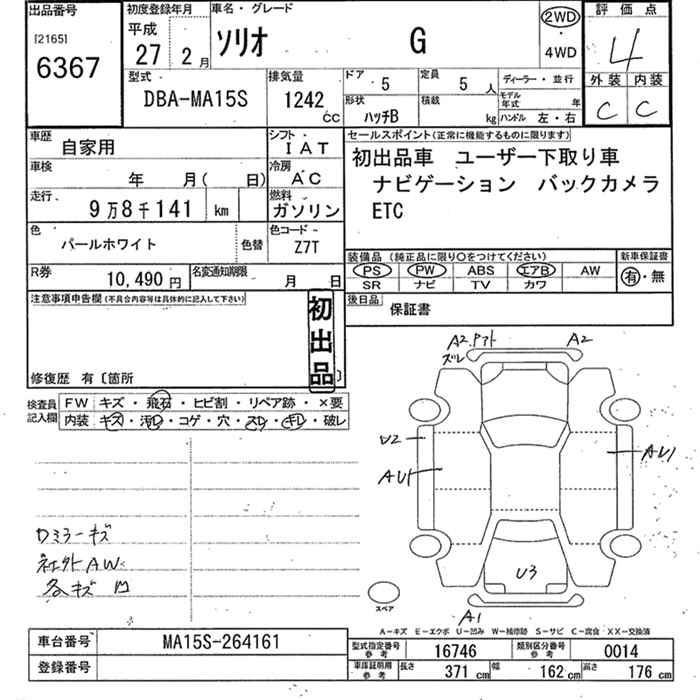 出品番号
[2165]
6367
初度登録年月
平成
27 2 月
車名・グレード
ソリオ G
2WD
・
4WD
評価点
4
型式
DBA-MA15S
排気量
1242 CC
ドア 5
定員 5 人
ディーラー・並行
形状 ハッチB
積載 kg
モデル年式 年
ハンドル 左・右
外装 内装
C C
車歴 自家用
シフト IAT
セールスポイント(正常に機能するものに限ります)
初出品車 ユーザー下取り車
ナビゲーション バックカメラ
ETC
車検 年 月( 日)
冷房 AC
走行 9万8千141 km
燃料 ガソリン
色 パールホワイト 色替
色コード Z7T
装備品(純正品に限り○をつけてください)
新車保証書
PS PW ABS エアB AW
SR ナビ TV カワ
有・無
R券 10,490 円
名変通知期限 月 日
後日品 保証書
注意事項申告欄(不具合内容等は具体的に記入して下さい)
初出品
修復歴 有〔箇所 〕
検査員記入欄
FW キズ・飛石・ヒビ割・リペア跡・×要
内装 キズ・汚レ・コゲ・穴・スレ・キレ・破レ
A2
ズレ
A2
U2
AU1
AU1
U3
A1
スペア
ロミラーキズ
社外AW
各キズ凹
A-キズ E-エクボ U-凹み W-補修跡 S-サビ C-腐食 XX-交換済
車台番号 MA15S-264161
登録番号
型式指定番号参考 16746
類別区分番号参考 0014
車庫証明用参考
長さ 371 cm
幅 162 cm
高さ 176 cm